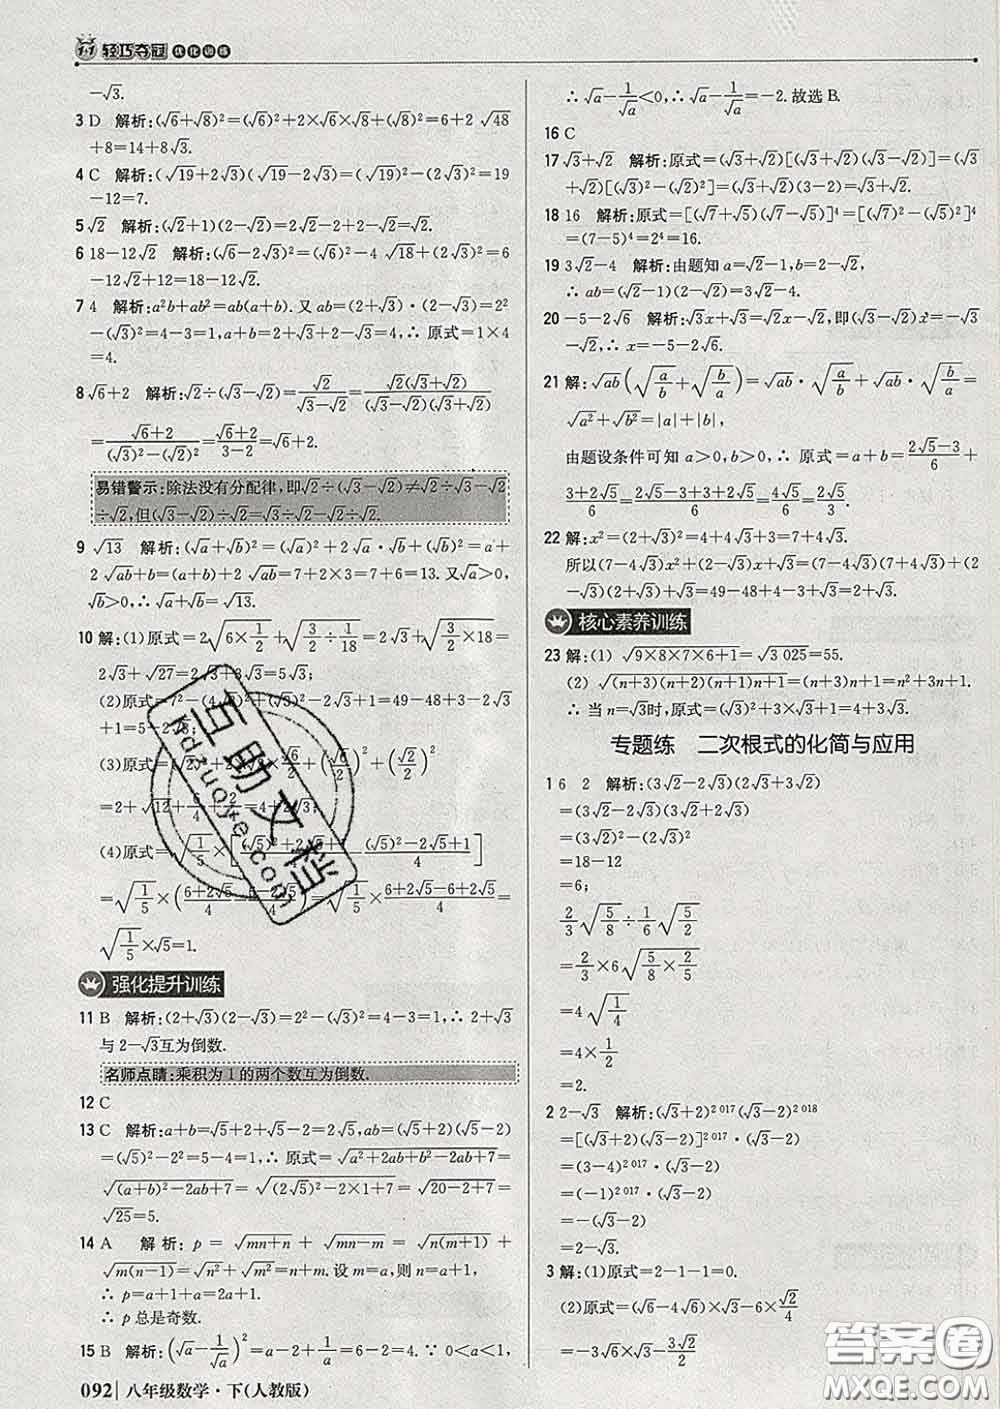 1+1 轻巧夺冠 优化训练
−√3.
3 D 解析:(√6+√8)²=(√6)²+2×√6×√8+(√8)²=6+2√48
+8=14+8√3.
4 C 解析:(√19+2√3)(√19−2√3)=(√19)²−(2√3)²=19
−12=7.
5 √2 解析:(√2+1)(2−√2)=2√2−2+2−√2=√2.
6 18−12√2 解析:(√6−2√3)²=(√6)²−4√18+(2√3)²=6
−12√2+12=18−12√2.
7 4 解析:a²b+ab²=ab(a+b).又 ab=(2+√3)·(2−√3)=2²
−(√3)²=4−3=1,a+b=2+√3+2−√3=4,∴原式=1×4
=4.
8 √6+2 解析:√2÷(√3−√2)=√2/(√3−√2)=√2(√3+√2)/((√3−√2)(√3+√2))
=(√6+2)/((√3)²−(√2)²)=(√6+2)/(3−2)=√6+2.
易错警示:除法没有分配律,即√2÷(√3−√2)≠√2÷√3−√2
÷√2,但(√3−√2)÷√2=√3÷√2−√2÷√2.
9 √13 解析:(√a+√b)²=(√a)²+2√a·√b+(√b)²=a+
2√ab+b=(a+b)+2√ab=7+2×3=7+6=13.又√a>0,
√b>0,∴√a+√b=√13.
10 解:(1)原式=2√(6×1/2)+√(3/2÷1/18)=2√3+√(3/2×18)=
2√3+√27=2√3+3√3=5√3.
(2)原式=7²−(4√3)²+(√3)²−2√3+1=49−48+3−2√3
+1=5−2√3.
(3)原式=
=2+√12+6/4+2/4=4+2√3.
(4)原式=√(1/5)×[((√5)²+2√5+1)/4−((√5)²−2√5+1)/4]
=√(1/5)×((6+2√5)/4−(6−2√5)/4)=√(1/5)×(6+2√5−6+2√5)/4=
√(1/5)×√5=1.
强化提升训练
11 B 解析:(2+√3)(2−√3)=2²−(√3)²=4−3=1,∴2+√3
与 2−√3互为倒数.
名师点睛:乘积为 1 的两个数互为倒数.
12 C
13 C 解析:a+b=√5+2+√5−2=2√5,ab=(√5+2)(√5−2)
=(√5)²−2²=5−4=1,∴原式=√(a²+2ab+b²−2ab+7)=
√((a+b)²−2ab+7)=√((2√5)²−2×1+7)=√(20−2+7)=
√25=5.
14 A 解析:p=√(mn+n)+√(mn−m)=√(n(m+1))+
√(m(n−1))=√n²+√m²=n+m.设 m=a,则 n=a+1,
∴p=a+1+a=2a+1.
∴p 总是奇数.
15 B 解析:(√a−1/√a)²=a−2+1/a=6−2=4.∵0<a<1,
092 八年级数学·下(人教版)
∴√a−1/√a<0,∴√a−1/√a=−2.故选 B.
16 C
17 √3+√2 解析:原式=(√3+√2)[(√3+√2)(√3−√2)]=(√3
+√2)[(√3)²−(√2)²]=(√3+√2)(3−2)=√3+√2.
18 16 解析:原式=[(√7+√5)(√7−√5)]⁴=[(√7)²−(√5)²]⁴
=(7−5)⁴=2⁴=16.
19 3√2−4 解析:由题知 a=√2−1,b=2−√2,
∴ab=(√2−1)(2−√2)=3√2−4.
20 −5−2√6 解析:√3x+√3=√2x−√2,即(√3−√2)x=−√3
−√2,∴x=−5−2√6.
21 解:√ab(√(a/b)+√(b/a))=√ab·√(a/b)+√ab·√(b/a)=
√a²+√b²=|a|+|b|,
由题设条件可知 a>0,b>0,∴原式=a+b=(2√5−3)/6+
(3+2√5)/6=(2√5−3+3+2√5)/6=4√5/6=2√5/3.
22 解:x²=(2−√3)²=4−4√3+3=7−4√3.
所以(7+4√3)x²+(2+√3)x+√3=(7+4√3)(7−4√3)+(2
+√3)(2−√3)+√3=49−48+4−3+√3=2+√3.
核心素养训练
23 解:(1)√(9×8×7×6+1)=√3 025=55.
(2)√((n+3)(n+2)(n+1)n+1)=(n+3)n+1=n²+3n+1.
∴当 n=√3时,原式=(√3)²+3×√3+1=4+3√3.
专题练 二次根式的化简与应用
1 6 2 解析:(3√2−2√3)(2√3+3√2)
=(3√2−2√3)(3√2+2√3)
=(3√2)²−(2√3)²
=18−12
=6;
2/3√(5/8)÷1/6√(5/2)
=2/3×6√(5/8×2/5)
=4√(1/4)
=4×1/2
=2.
2 2−√3 解析:(√3+2)²⁰¹⁷(√3−2)²⁰¹⁸
=[(√3+2)(√3−2)]²⁰¹⁷·(√3−2)
=(3−4)²⁰¹⁷·(√3−2)
=(−1)²⁰¹⁷·(√3−2)
=−(√3−2)
=2−√3.
3 解:(1)原式=2−1−1=0.
(2)原式=(√6−4√6)×√3−6×√2/4
=−3√6×√3−3√2/2
互助文档
hdzuoye.com
答案圈
MXQE.COM